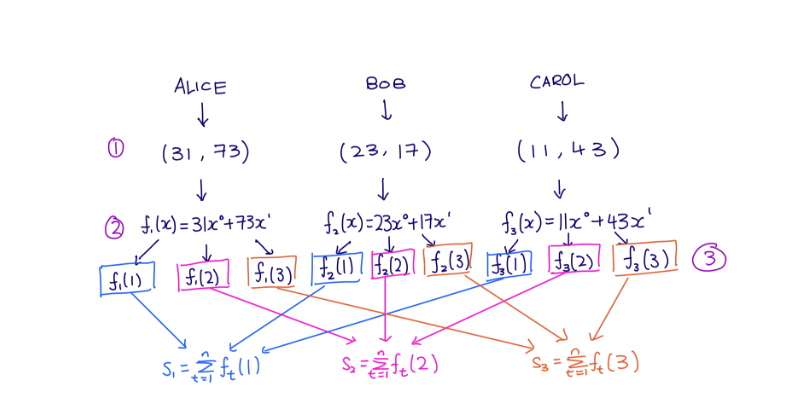 ALICE BOB CAROL
① (31, 73) (23, 17) (11, 43)
② f₁(x)=31x⁰+73x¹ f₂(x)=23x⁰+17x¹ f₃(x)=11x⁰+43x¹
f₁(1) f₁(2) f₁(3) f₂(1) f₂(2) f₂(3) f₃(1) f₃(2) f₃(3) ③
S₁=∑ⁿₜ₌₁fₜ(1) S₂=∑ⁿₜ₌₁fₜ(2) S₃=∑ⁿₜ₌₁fₜ(3)